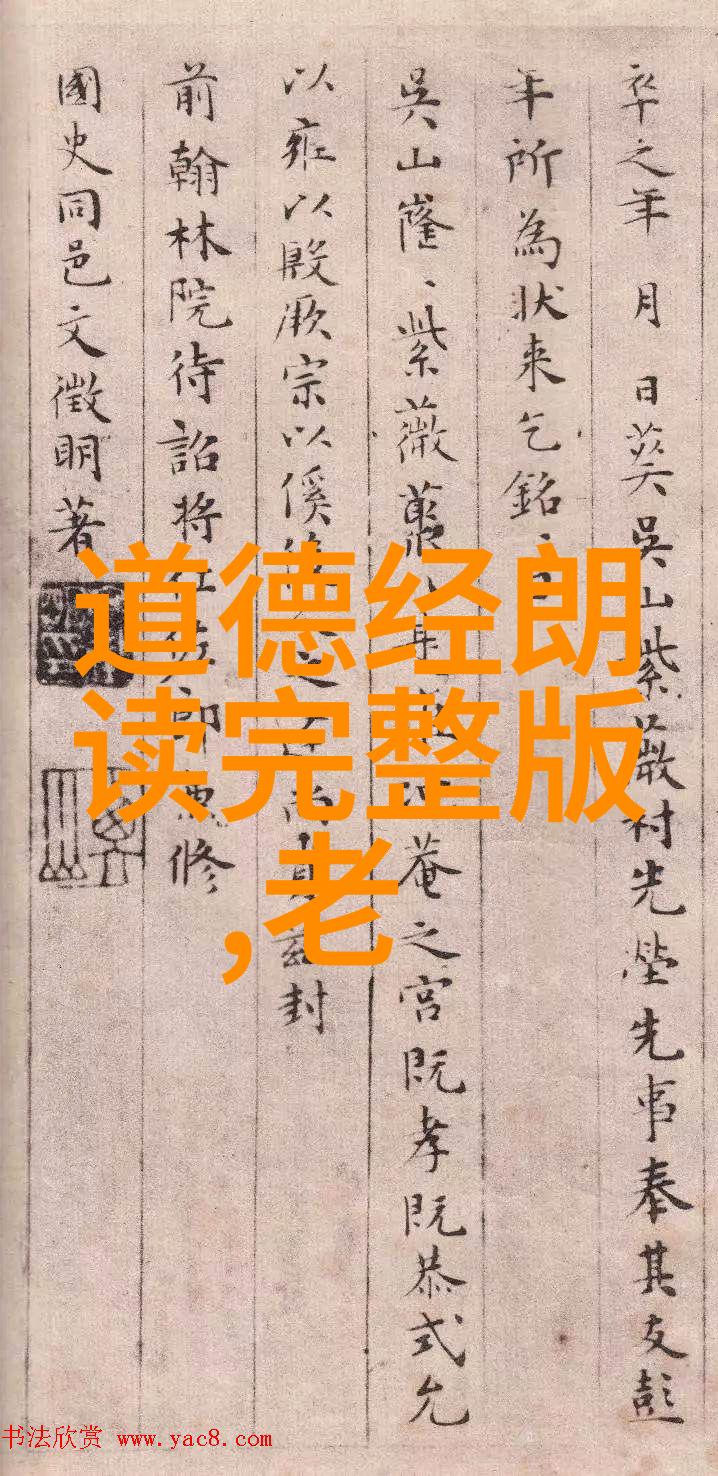 卒之年 月 日葬吳山紫薇村先塋先事奉其友彭
年所為狀来乞銘
吳山 紫薇 菴之宮既孝既恭式允
以雍以殷厥宗以傒 封
前翰林院待詔將仕佐郎 修
國史同邑文徵明著
道德经朗
读完整版
,老
书法欣赏 www.yac8.com